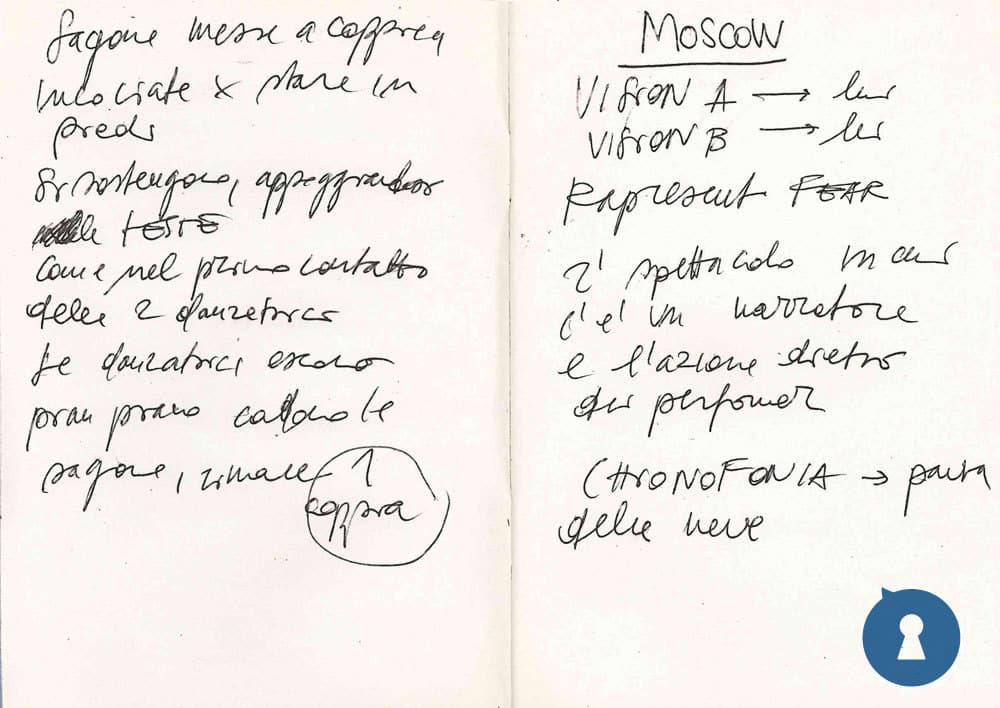 Sagome messe a coppie
incociate x stare in
piedi
Si sostengono, appoggiandosi
le TESTE
come nel primo contatto
delle 2 danzatrici
Le danzatrici escono
pian piano cadono le
sagome, rimane 1
coppia
MOSCOW
VISION A → lui
VISION B → lei
Rapresent FEAR
2' spettacolo in cui
c'e' un narratore
e l'azione dietro
dei perfomer
CHRONOFONIA → paura
delle neve